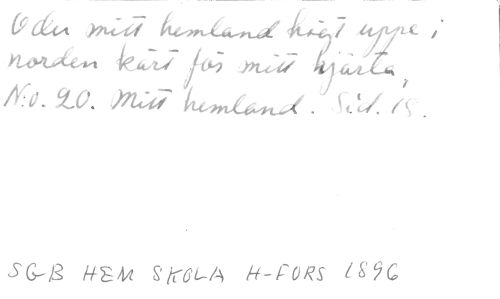 O du mitt hemland högt uppe i
norden kärt för mitt hjärta,
N:o. 20. Mitt hemland. Sid. 15.
SGB HEM SKOLA H-FORS 1896